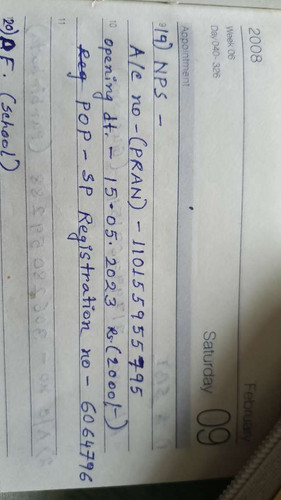 2008 February
Week 06 Saturday 09
Day 040-326
Appointment
9 19) NPS –
A/c no – (PRAN) – 110155955795
10 opening dt. – 15.05.2023 Rs.(2000/-)
POP – SP Registration no – 6064796
11
20) F. (School)